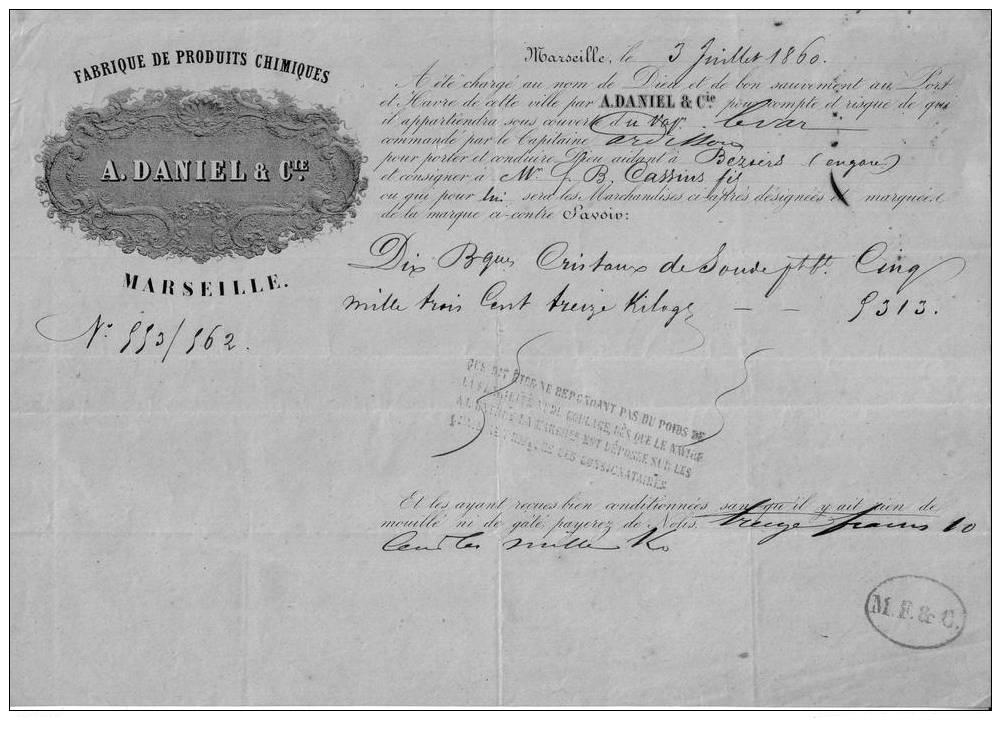 FABRIQUE DE PRODUITS CHIMIQUES
A. DANIEL & CIE.
MARSEILLE.
Nº 553/562.
Marseille, le 3 Juillet 1860.
A été chargé au nom de Dieu et de bon sauvement au Port
et Havre de cette ville par A. DANIEL & Cie pour compte et risque de qui
il appartiendra sous couverte du vap. le var
commandé par le Capitaine ardisson
pour porter et conduire Dieu aidant à Beziers
et consigner à Mr J. B. Cassins fils
ou qui pour lui sera les Marchandises ci-après désignées et marquées
de la marque ci-contre Savoir:
Dix Bques Cristaux de Soude Cinq
mille trois Cent treize Kilogs — — 5313.
QUE DIT ÊTRE NE REPONDANT PAS DU POIDS DE
LA NI DU COULAGE, DÈS QUE LE NAVIRE
A LA EST DÉPOSÉE SUR LES
DES CONSIGNATAIRES
Et les ayant reçues bien conditionnées sans qu'il y ait rien de
mouillé ni de gâté payerez de Nolis. treize francs 10
Cent les mille Ko
M. F. & C.